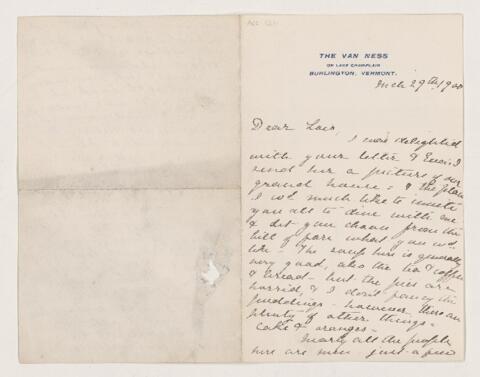 THE VAN NESS
ON LAKE CHAMPLAIN
BURLINGTON, VERMONT.
Mch 29th, 1900
Dear Lois,
I was delighted
with your letter &
send her a picture of our
grand house - & the place
I wd. much like to invite
you all to dine with me
& let you choose from the
bill of fare what you wd.
like - The soup here is generally
very good, also the tea & coffee
& bread - but the pies are
horrid, & I don't fancy the
puddings - however there are
plenty of other things -
Cake & oranges -
Nearly all the people
here are men just a few